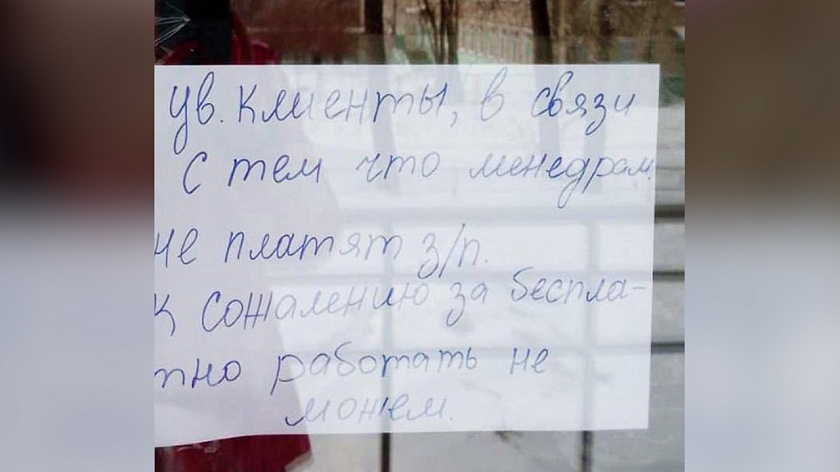 ув. Клиенты, в связи
с тем что менедрам.
не платят з/п.
к сожалению за беспла-
тно работать не
можем.